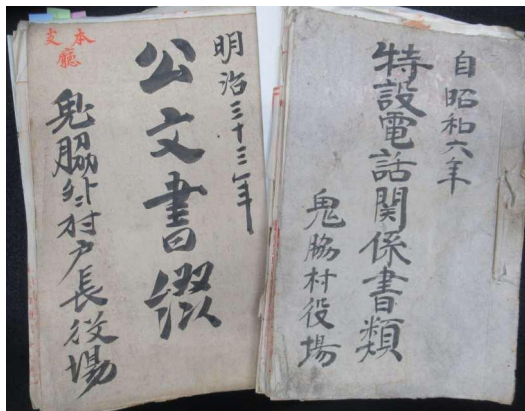 自昭和六年
特設電話関係書類
鬼脇村役場
明治三十三年
公文書綴
鬼脇外村戸長役場
本支
廳